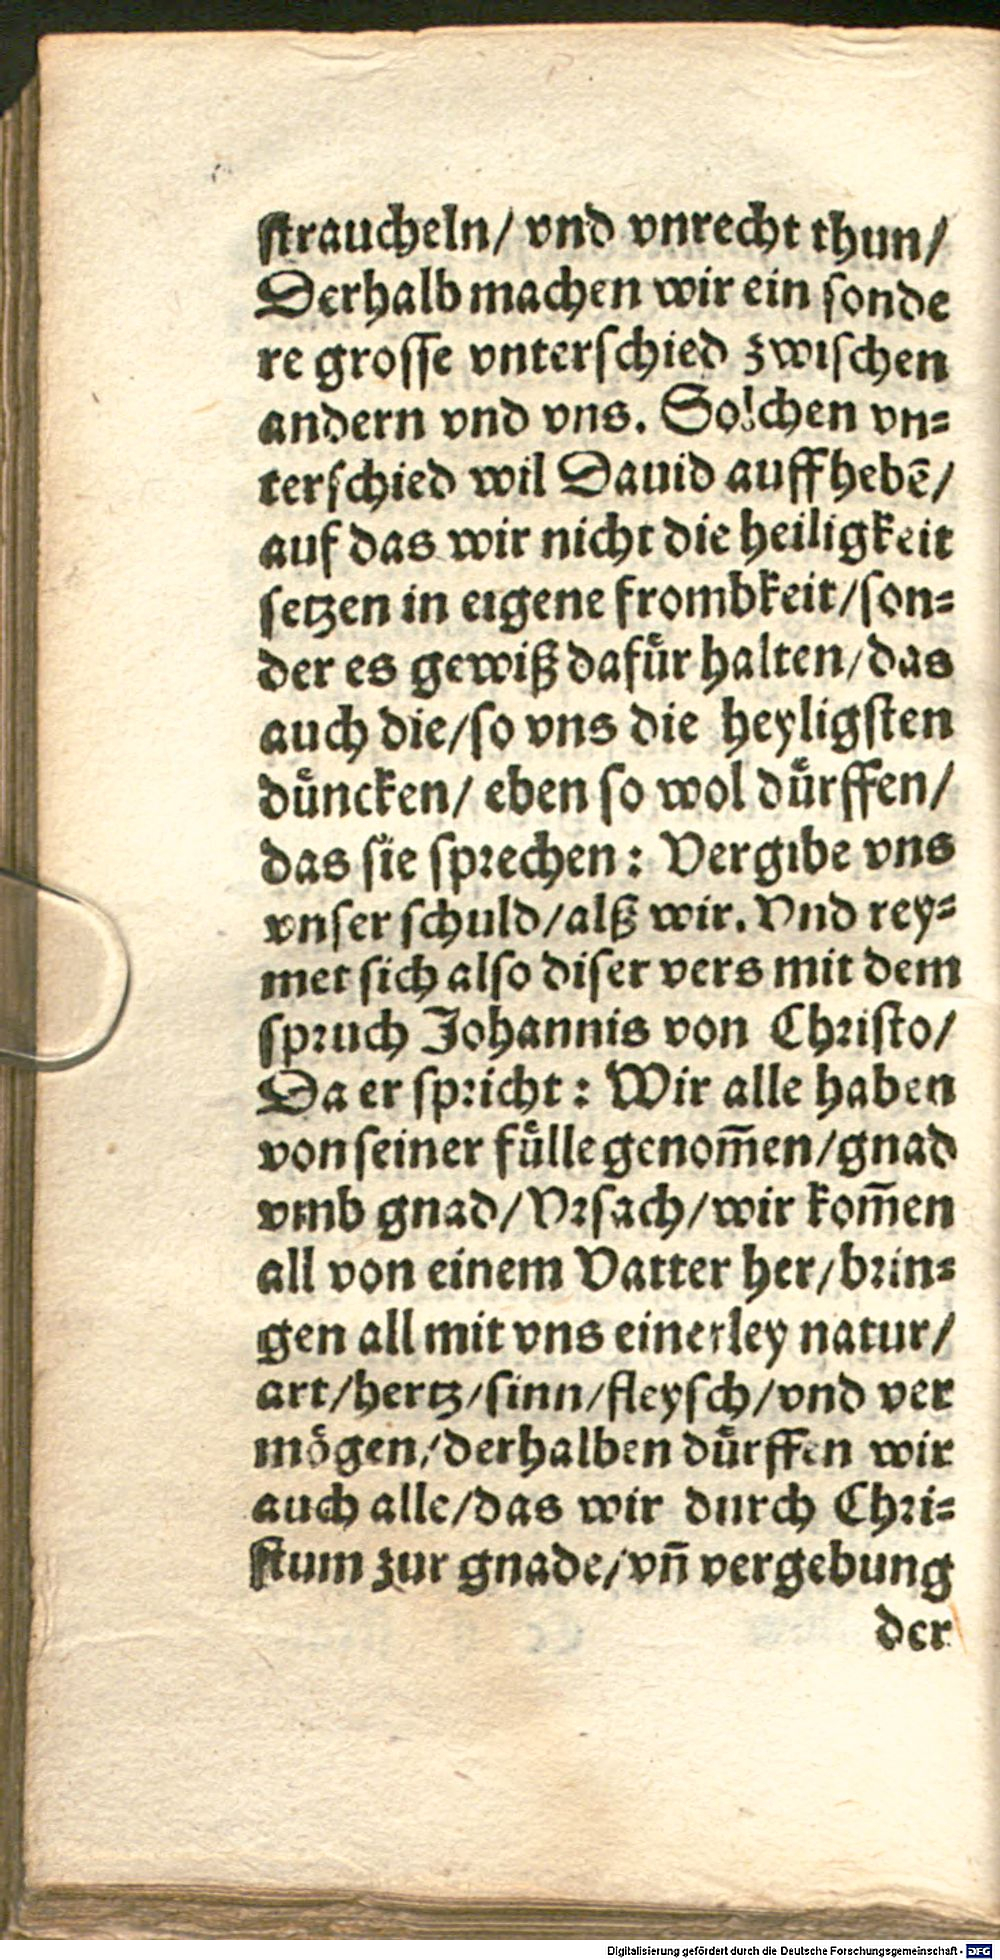 straucheln/ vnd vnrecht thun/
Derhalb machen wir ein sonde
re grosse vnterschied zwischen
andern vnd vns. Solchen vn=
terschied wil Dauid auffhebē/
auf das wir nicht die heiligkeit
setzen in eigene frombkeit/son=
der es gewiß dafuͤr halten/das
auch die/so vns die heyligsten
duͤncken/ eben so wol duͤrffen/
das sie sprechen: Vergibe vns
vnser schuld/alß wir. Vnd rey=
met sich also diser vers mit dem
spruch Johannis von Christo/
Da er spricht: Wir alle haben
von seiner fuͤlle genom̄en/gnad
vmb gnad/Vrsach/wir kom̄en
all von einem Vatter her/brin=
gen all mit vns einerley natur/
art/hertz/sinn/fleysch/vnd ver
moͤgen/derhalben duͤrffen wir
auch alle/das wir durch Chri=
stum zur gnade/vn̄ vergebung
der
Digitalisierung gefördert durch die Deutsche Forschungsgemeinschaft - DFG